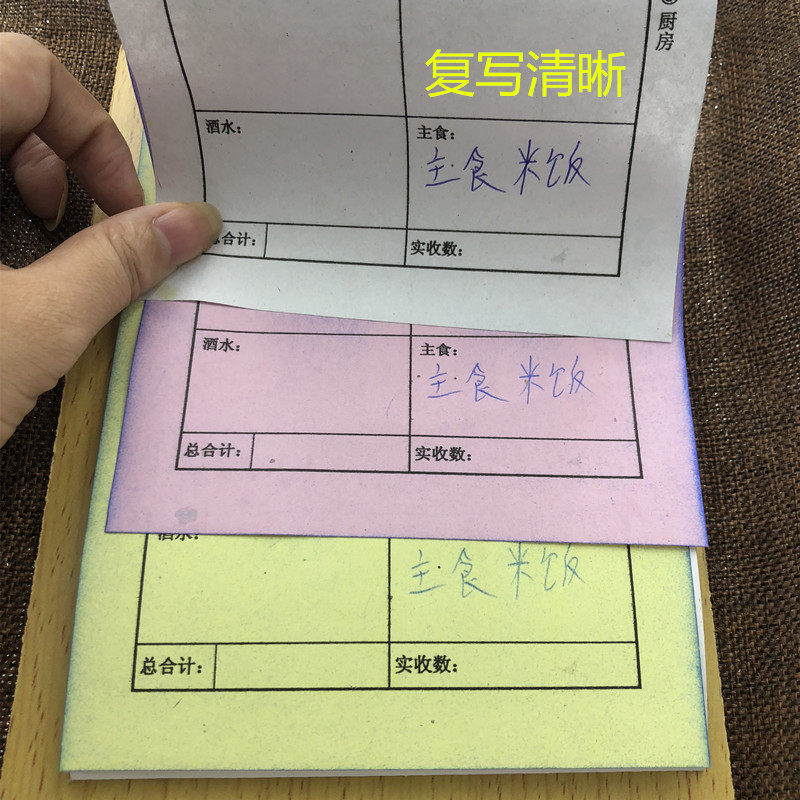 厨房
复写清晰
酒水： 主食：
主食 米饭
总合计： 实收数：
酒水： 主食：
主食 米饭
总合计： 实收数：
酒水：
主食 米饭
总合计： 实收数：